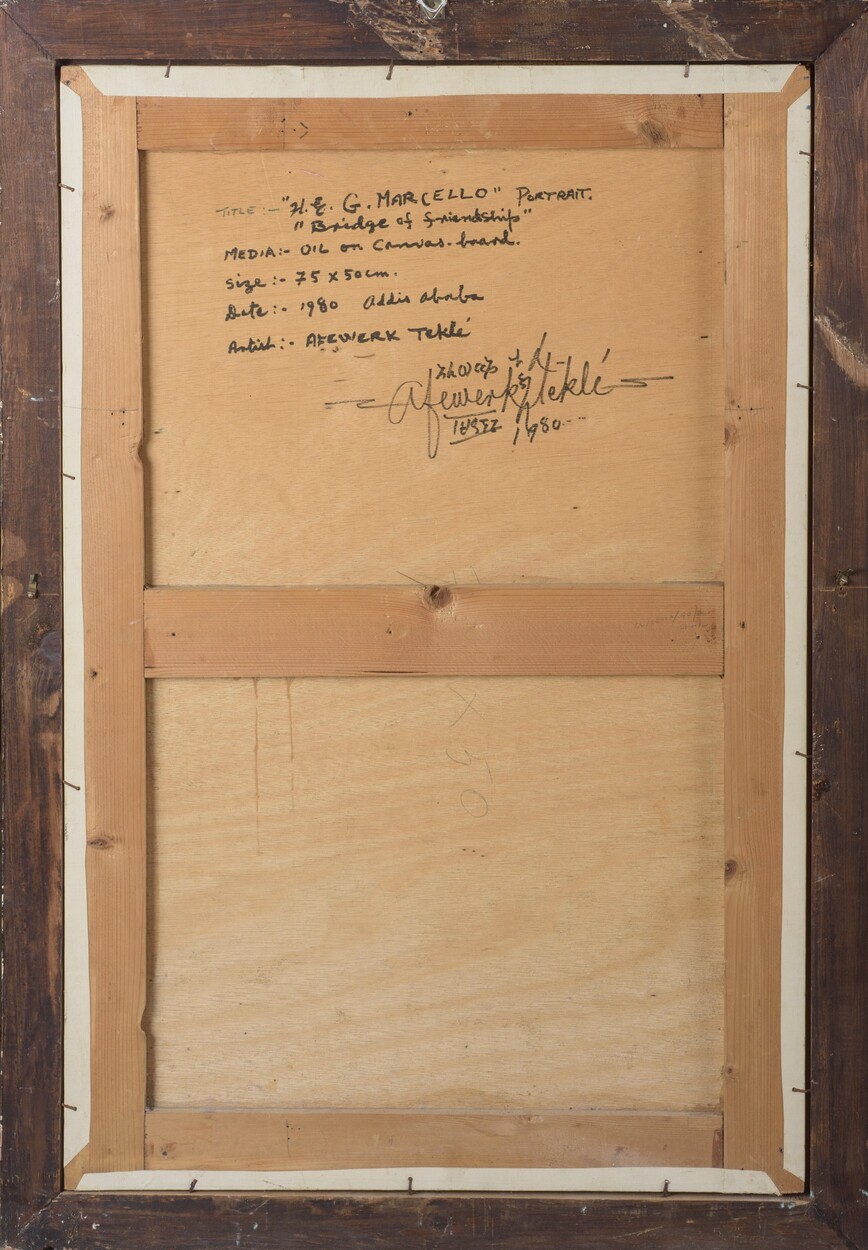 TITLE :- "H.E. G. MARCELLO" PORTRAIT.
"Bridge of friendship"
MEDIA:- OIL on Canvas-board.
Size :- 75 x 50cm.
Date :- 1980 Addis ababa
Artist :- AFEWERK Teklé
afewerk teklé
1980
X 50